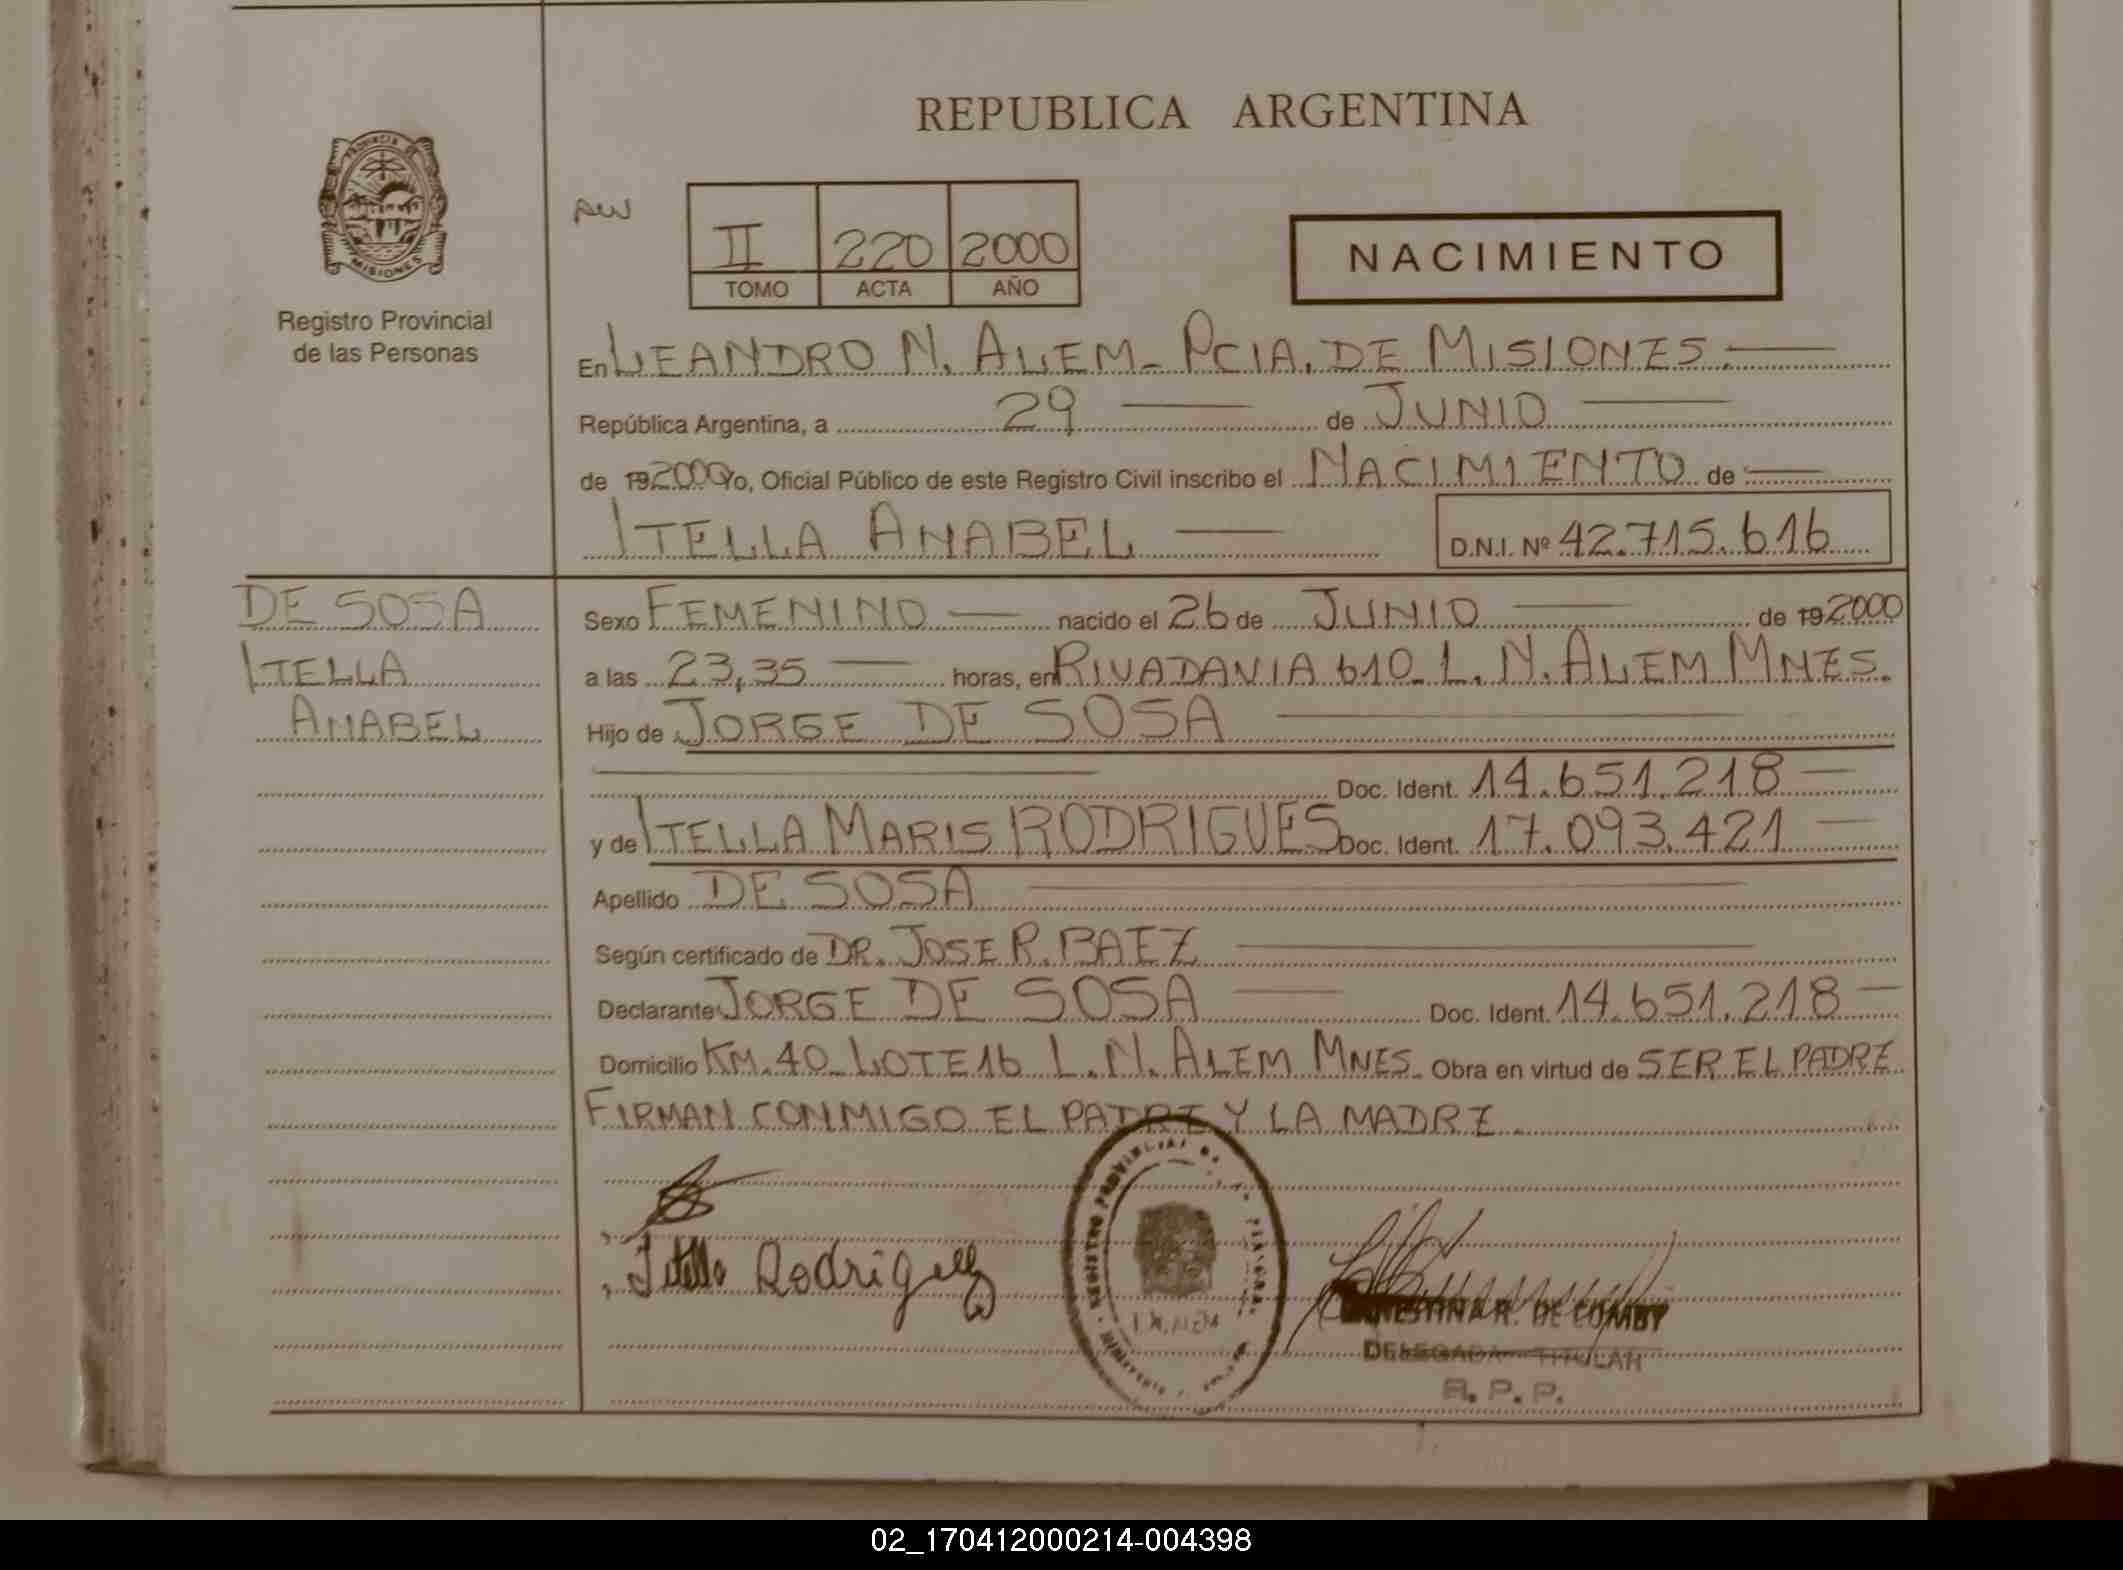 REPUBLICA ARGENTINA
PROVINCIA DE
MISIONES
Registro Provincial
de las Personas
II 220 2000
TOMO ACTA AÑO
NACIMIENTO
En LEANDRO N. ALEM - PCIA. DE MISIONES.
República Argentina, a 29 de JUNIO
de 19 2000 Yo, Oficial Público de este Registro Civil inscribo el NACIMIENTO de
ITELLA ANABEL D.N.I. Nº 42.715.616
DE SOSA
ITELLA
ANABEL
Sexo FEMENINO nacido el 26 de JUNIO de 19 2000
a las 23,35 horas, en RIVADAVIA 610 - L. N. ALEM MNES.
Hijo de JORGE DE SOSA
Doc. Ident. 14.651.218
y de ITELLA MARIS RODRIGUES Doc. Ident. 17.093.421
Apellido DE SOSA
Según certificado de DR. JOSE R. BAEZ
Declarante JORGE DE SOSA Doc. Ident. 14.651.218
Domicilio KM. 40 - LOTE 16 L. N. ALEM MNES. Obra en virtud de SER EL PADRE
FIRMAN CONMIGO EL PADRE Y LA MADRE.
Itella Rodriguez
REGISTRO PROVINCIAL DE
R. DE COMBY
DELEGADA TITULAR
R. P. P.
02_170412000214-004398